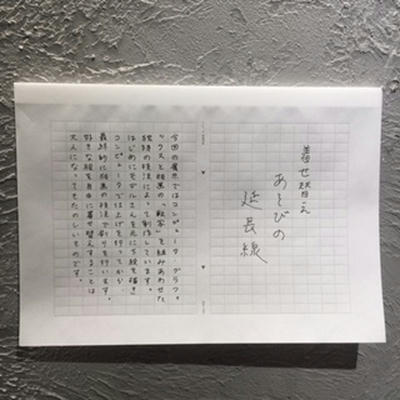 着せ替え
あそびの
延長線
今回の展示ではコンピュータ・グラフィ
ックスと版画の「転写」を組みあわせた
独特の技法によって制作しています。
はじめにモデルさんを元に、絵を描き
コンピュータで仕上げを行ってから、
最終的に版画の技法で刷りを行います。
好きな絵を自由に着せ替えすることは
大人になってもたのしいものです。